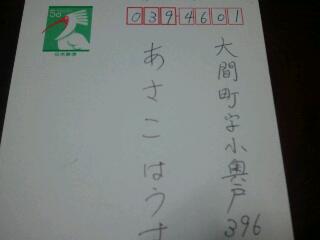 50
日本郵便
0394601
大間町字小奥戸396
あさこはうす